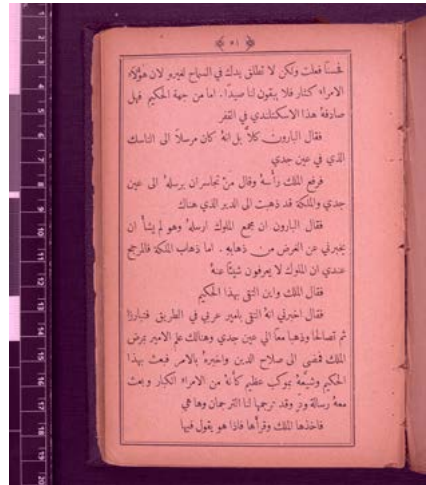 ﴿ ٥١ ﴾
فحسنًا فعلت ولكن لا تطلق يدك في السماح لغيرهِ لان هؤلاء
الامراء كثار فلا يبقون لنا صيدًا. اما من جهة الحكيم فهل
صادفهُ هذا الاسكتلندي في القفر
فقال البارون كلاَّ بل انهُ كان مرسلاً الى الناسك
الذي في عين جدي
فرفع الملك رأسهُ وقال مَنْ تجاسر ان يرسلهُ الى عين
جدي والملكة قد ذهبت الى الدير الذي هناك
فقال البارون ان مجمع الملوك ارسلهُ وهو لم يشأ ان
يخبرني عن الغرض من ذهابهِ. اما ذهاب الملكة فالمرجح
عندي ان الملوك لا يعرفون شيئًا عنهُ
فقال الملك واين التقى بهذا الحكيم
فقال اخبرني انهُ التقى بامير عربي في الطريق فتبارزا
ثم تصالحا وذهبا معًا الى عين جدي وهنالك علم الامير بمرض
الملك فمضى الى صلاح الدين واخبرهُ بالامر فبعث بهذا
الحكيم وشيَّعهُ بموكب عظيم كأنهُ من الامراء الكبار وبعث
معهُ رسالة ودّ وقد ترجمها لنا الترجمان وها هي
فاخذها الملك وقرأها فاذا هو يقول فيها
1
2
3
4
5
6
7
8
9
10
11
12
13
14
15
16
17
18
19
20